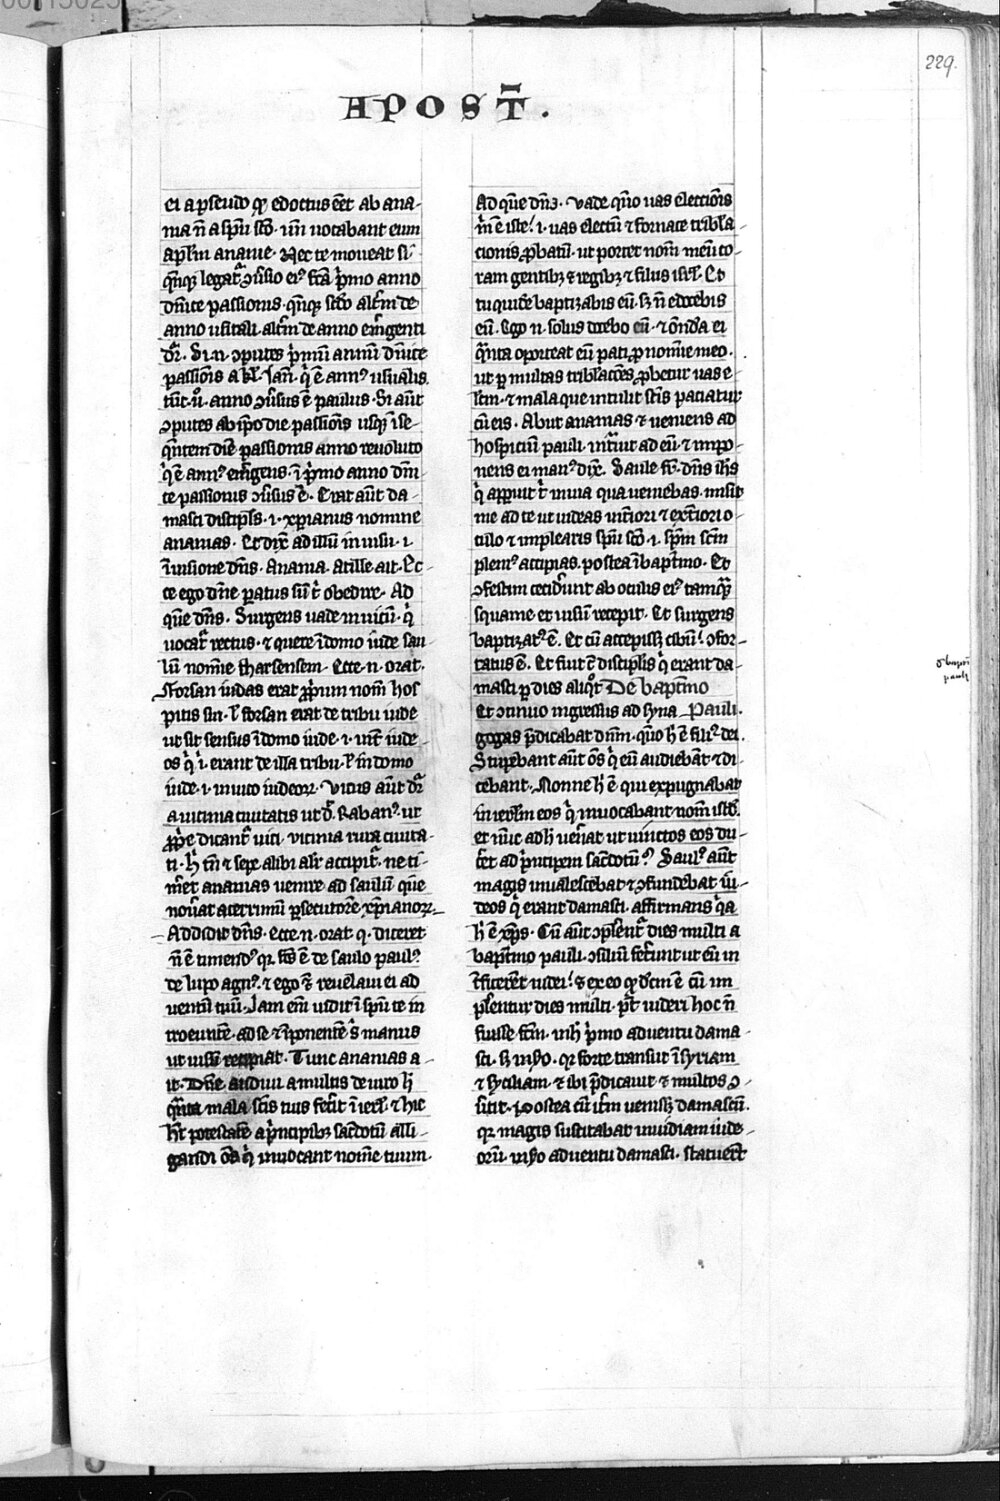 229.
APOST̄.
ei a pseudo qꝫ edoctus eēt ab ana-
nia n̄ a sp̄u sc̄o. iīi uocabant eum
ap̄l̄m ananie. Nec te moueat si
legat̄ ꝯūsio eiꝰ fc̄a p̄mo anno
dn̄ice passionis. sc̄do
anno usitali. alt̄m de anno em̄genti
dr̄. Si.n. ꝯputes p̄mū annū dn̄ice
passiōis a kl̓. Jan̄. q̄ ē annꝰ usualis.
tūc ū. anno ꝯūsus ē paulus. Si aūt
ꝯputes ab ip̄o die passiōis usqꝫ ī se-
quētem diē passionis anno reuoluto
q̄ ē annꝰ em̄gens. ī p̄mo anno dn̄i
ce passionis ꝯūsus ē. Erat aūt da-
masci discipl̄s. i. xp̄ianus nomine
ananias. Et dix̄ ad illū in uisu. i.
ī uisione dn̄s. Anania. At ille ait. Ec-
ce ego dn̄e paratus sū t̄ obedire. Ad
quē dn̄s. Surgens uade in uicū. q̄
uocat̄ rectus. ⁊ quere ī domo iude sau
lū nomīe tharsensem. Ecce.n. orat.
Forsan iudas erat p̄prium nom̄ hos
pitis sui. l̓ forsan erat de tribu iude
ut sit sensus ī domo iude. i. int̄ iude-
os q̄ ī. erant de illa tribu. l̓ in domo
iude. i. in uico iudeoꝝ. Vicus aūt dr̄
a uicinia ciuitatis ut d̄. Rabanꝰ. ut
p̄prie dicant̄ uici. uicinia rura ciuita-
ti. h̄ tn̄ ⁊ sepe alibi alr̄ accipit̄. ne ti-
m̄et ananias uenire ad saulū quē
nou̓at acerrimū p̄secutorē xp̄ianoꝝ-
Addidit dn̄s. ecce.n. orat q. diceret
n̄ ē timendꝰ qꝛ fc̄s ē de saulo paulꝰ.
de lupo agnꝰ. ⁊ ego ē reuelaui ei ad
uentū tuū. Jam em̄ uidit ī sp̄u te in
troeuntē. ad se ⁊ īponentē s̄ manus
ut uisū recipiat. Tunc ananias a-
it. Dn̄e audiui a multis de uiro h̄
q̄nta mala sc̄is tuis fecit ī ierl̄. ⁊ hic
h̄t potestatē a p̄ncipibꝫ sac̄dotū alli-
gandi oēs q̄ inuocant nomē tuum.
Ad quē dn̄s. Vade qm̄o uas elecciōis
m̄ ē iste. i. uas electū ⁊ fornace tribl̄a
cionis p̄batū. ut portet nom̄ meū co-
ram gentibꝫ ⁊ regibꝫ ⁊ filiis isr̄l. Et
tu quidē baptizabis eū. sꝫ n̄ edocebis
eū. Ego n. solus docebo eū. ⁊ oñdā ei
q̄nta oporteat eū pati p̄ nomīe meo.
ut p̄ multas tribl̄acōes p̄betur uas e-
lcm̄. ⁊ mala que intulit sc̄is paciatur
cū eis. Abiit ananias ⁊ ueniens ad
hospiciū pauli. int̄uit ad eū. ⁊ impo-
nens ei manꝰ dix̄. Saule fr̄. dn̄s ih̄s
q̄ apparuit t̄ in uia qua ueniebas. misit
me ad te ut uideas int̄iori ⁊ ext̄iori o-
culo ⁊ implearis sp̄u sc̄o. i. sp̄m sc̄m
pleniꝰ accipias. postea ī bapt̄mo. Et
ꝯfestim cecid̄unt ab oculis eiꝰ tamqꝫ
squame et uisū recepit. Et surgens
baptizatꝰ ē. Et cū accepissꝫ cibū. ꝯfor-
tatus ē. Et fuit c̄ discipl̄is q̄ erant da-
masci p̄ dies aliq̄t De bapt̄mo
Et ꝯtinuo ingressus ad syna Pauli.
gogas p̄dicabat dn̄m. quō h̄ ē filiꝰ dei.
Stupebant aūt oēs q̄ eū audiebāt ⁊ di-
cebant. Nonne h̄ ē qui expugnabat
in ierl̄m eos q̄ inuocabant nom̄ istd̄.
et nūc adh̄ uen̓at ut uinctos eos du-
c̄et ad p̄ncipem sac̄dotū? Saulꝰ aūt
magis inualescebat ⁊ ꝯfundebat iu-
deos q̄ erant damasci. affirmans q̄a
h̄ ē xp̄s. Cū aūt ꝯplent̄ dies multi a
bapt̄mo pauli. ꝯsiliū fec̄unt ut eū in
t̄ficerēt iudei. ⁊ ex eo qꝫ dcm̄ ē cū im
plentur dies multi. pt̄ uideri hoc n̄
fuisse fcm̄. in h̄ p̄mo aduentu dama-
sci. sꝫ in ꝯo. qꝛ forte transiit ī syriam
⁊ syciliam. ⁊ ibi p̄dicauit ⁊ multos ꝯ-
ūtit. Postea cū it̄m uenissꝫ damascū.
qꝛ magis suscitabat inuidiam iude-
orū. in ꝯo aduentu damasci. statuer̄t
d̓ bapt̄i
pauli